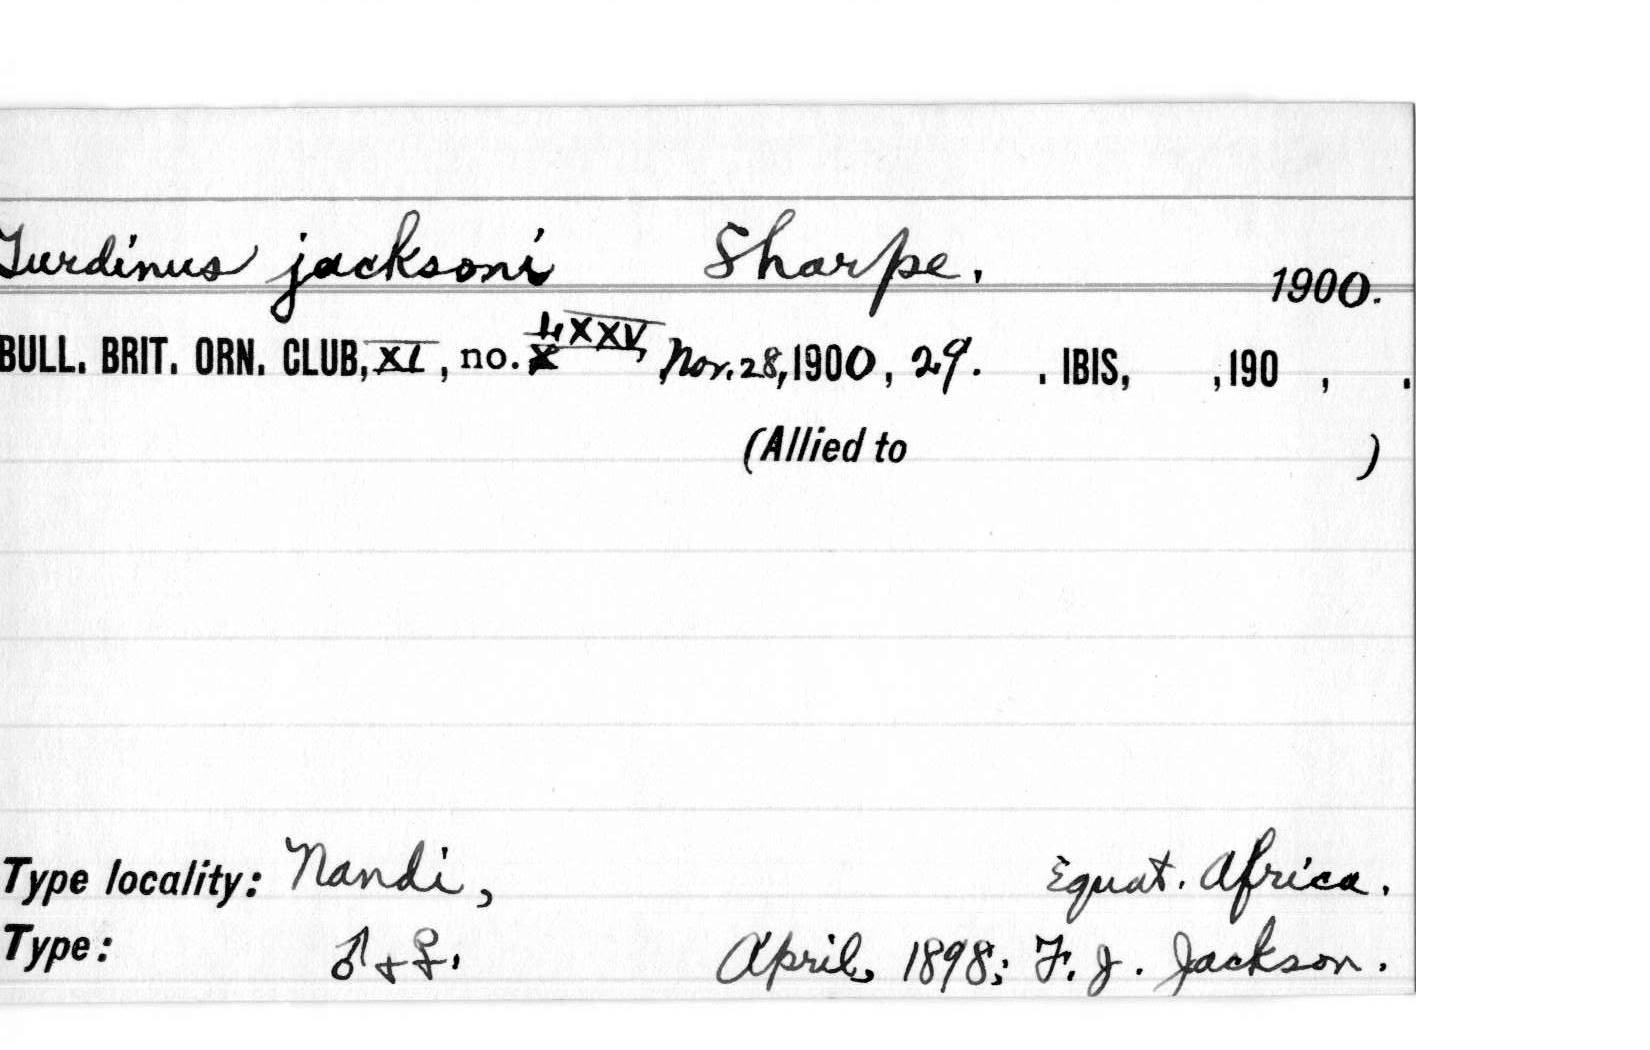 Turdinus jacksoni Sharpe. 1900.
BULL. BRIT. ORN. CLUB, XI, no. LXXV, Nov. 28, 1900, 29. . IBIS, ,190 , .
(Allied to )
Type locality: Nandi, Equat. Africa.
Type: ♂ + ♀. April, 1898; F. J. Jackson.